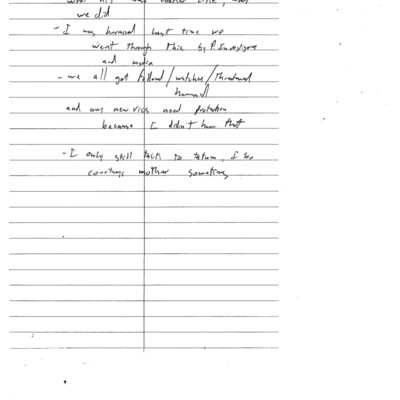 we did
- I was harassed last time we
went through this by P.
and media
- we all got followed/watched/threatened
harassed
and any new vics need protection
because I didn't have that
- I only still talk to tatum, I see
courtneys mother sometimes